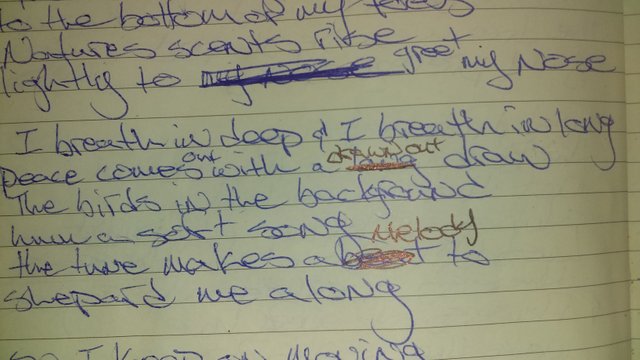 to the bottom of my
Natures scents rise
lightly to my nose greet my Nose
I breath in deep & I breath in long
peace comes out with a drawn out draw
The birds in the background
hum a soft song Melody
the tune makes a to
shepard me along
so I keep on moving